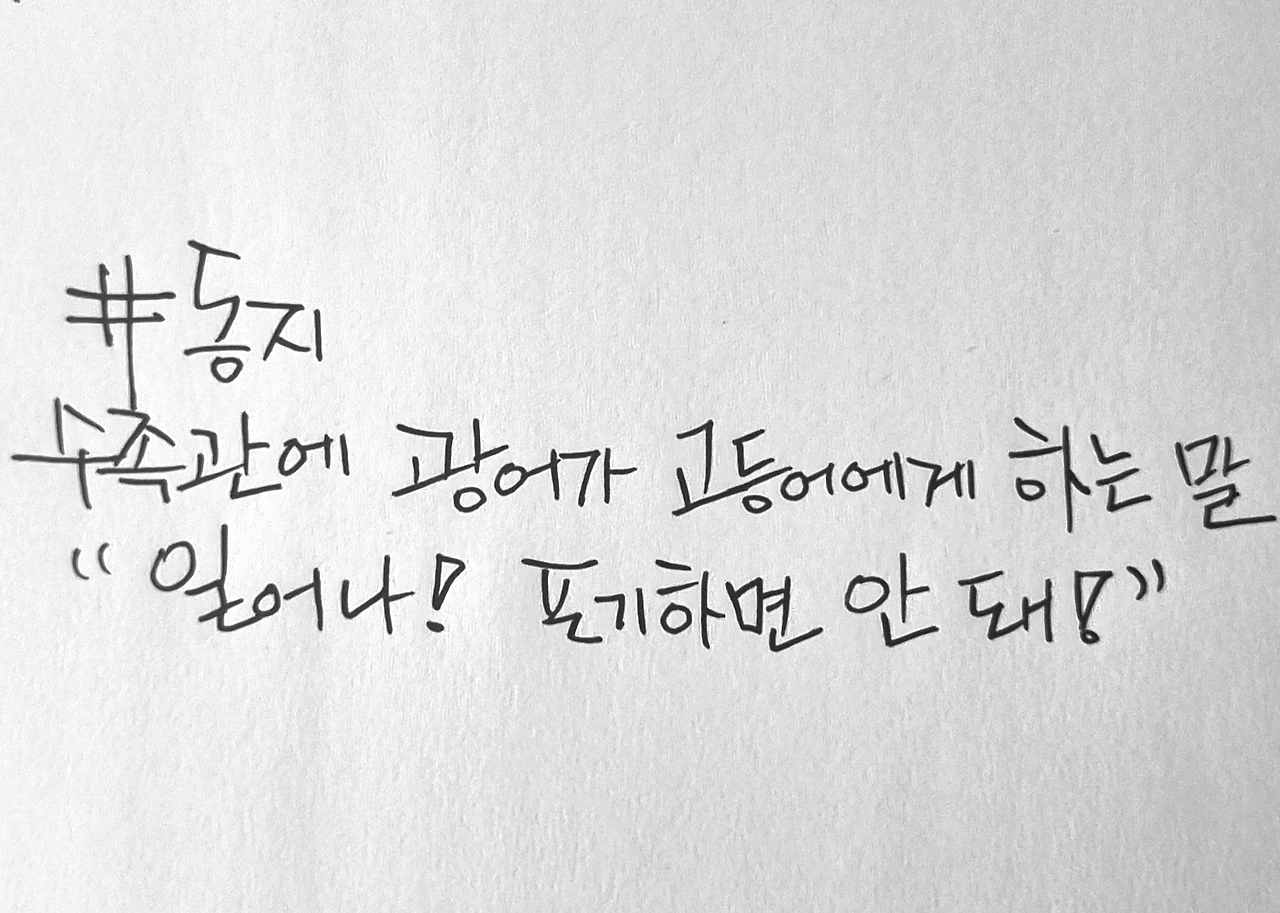 #동지
수족관에 광어가 고등어에게 하는 말
“일어나! 포기하면 안 돼!”